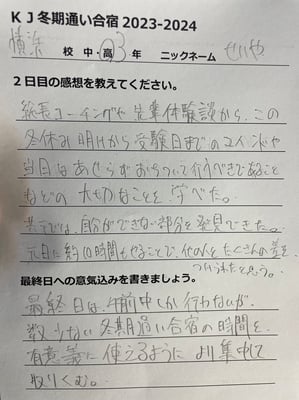 KJ冬期通い合宿2023-2024
横浜 校 中・高 3 年 ニックネーム せいや
2日目の感想を教えてください。
コーチングや先輩体験談から、この
冬休み明けから受験日までの
当日はあせらずおちついて行うべきであること
などの大切なことを学べた。
では、自分ができない部分を発見できた。
元旦に約10時間もやることで、他の人とたくさんの差を
つけられたと思う。
最終日への意気込みを書きましょう。
最終日は、午前中しか行わないが、
数少ない冬期通い合宿の時間を
有意義に使えるように より集中して
取りくむ。